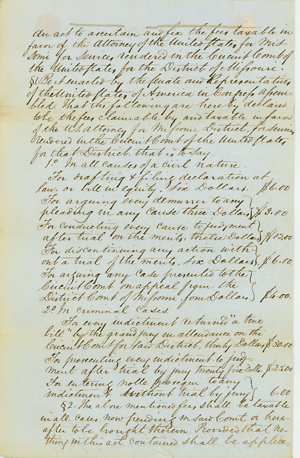 An act to ascertain and fix the fees taxable in
favor of the Attorney of the United States for Mis
souri for services rendered in the Circuit Court of
the United States for the District of Missouri
§1 Be it enacted by the Senate and Representatives
of the United States of America in Congress assem
bled That the following are hereby declared
to be the fees claimable by and taxable in favor
of the U.S. Attorney for Missouri District, for services
rendered in the Circuit Court of the United States
for that District, that is to say.
1st In all causes of a civil nature.
For drafting & filing declaration at
law, or bill in equity, Six Dollars. $6.00
For arguing every demurrer to any
pleading in any cause three Dollars $3.00
For conducting every cause to judgment
after trial on the merits, twelve Dollars $12.00
For discontinuing any action with
out a trial of the merits, Six Dollars $6.00
For arguing any case presented to the
Circuit Court on appeal from the
District Court of Missouri four Dollars $4.00
2d In criminal cases
For every indictment returned "a true
bill" by the grand jury on attendance on the
Circuit Court for said District thirty Dollars $30.00
For prosecuting every indictment to judg
ment after trial by jury twenty five dolls $25.00
For entering nolle prosequi to any
indictment without trial by jury 6.00
§2. The above mentioned fees shall be taxable
in all cases now pending in said Court or here
after to be brought therein. Provided that no
thing in this act contained shall be applica